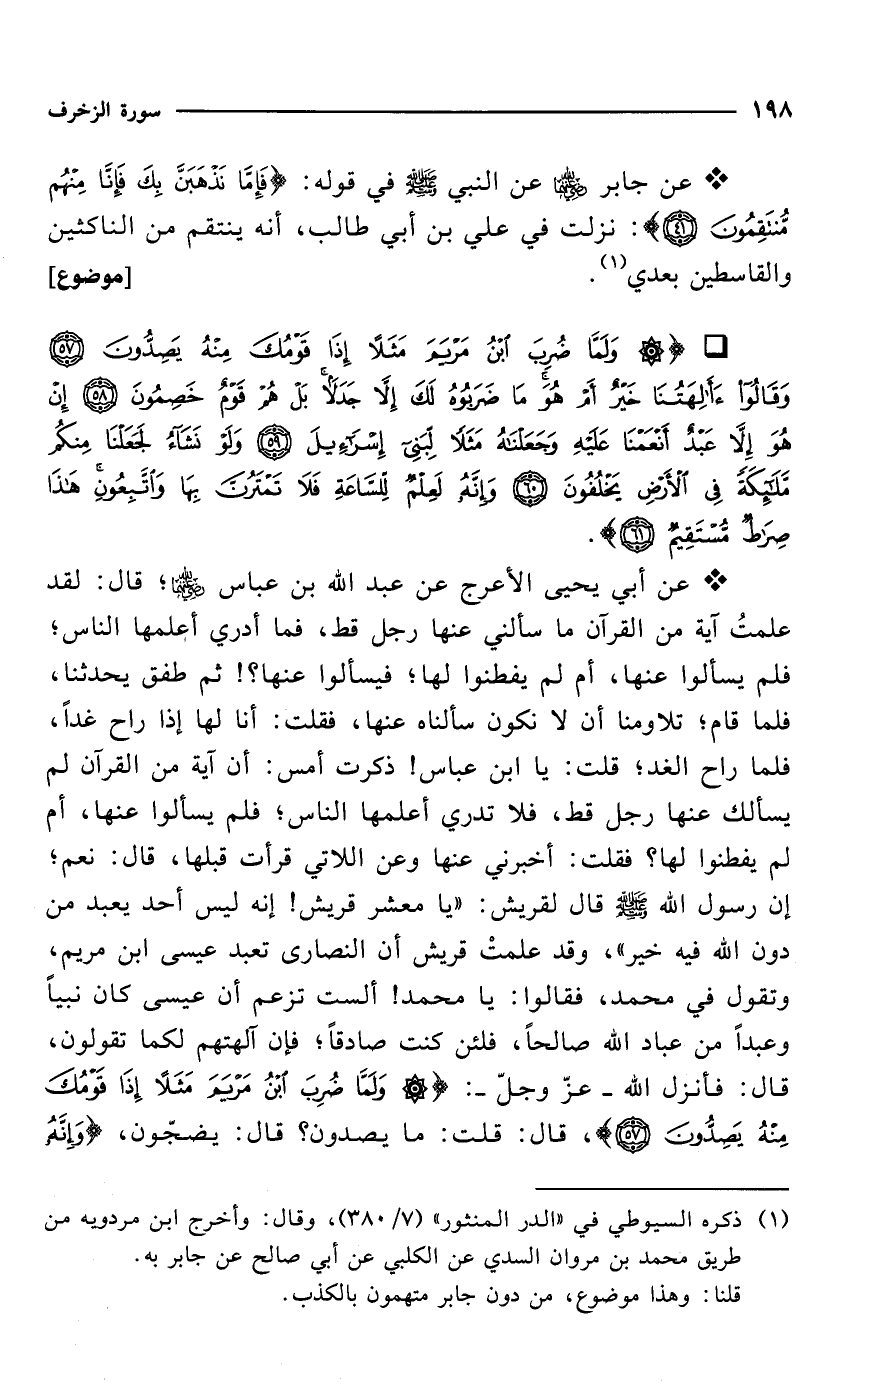 ١٩٨ سورة الزخرف
❖ عن جابر ﵁ عن النبي ﷺ في قوله: ﴿فَإِمَّا نَذْهَبَنَّ بِكَ فَإِنَّا مِنْهُم
مُّنتَقِمُونَ ﴿٤١﴾﴾: نزلت في علي بن أبي طالب، أنه ينتقم من الناكثين
والقاسطين بعدي(١). [موضوع]
❑ ﴿۞ وَلَمَّا ضُرِبَ ٱبْنُ مَرْيَمَ مَثَلًا إِذَا قَوْمُكَ مِنْهُ يَصِدُّونَ ﴿٥٧﴾
وَقَالُوٓا۟ ءَأَٰلِهَتُنَا خَيْرٌ أَمْ هُوَ ۚ مَا ضَرَبُوهُ لَكَ إِلَّا جَدَلًۢا ۚ بَلْ هُمْ قَوْمٌ خَصِمُونَ ﴿٥٨﴾ إِنْ
هُوَ إِلَّا عَبْدٌ أَنْعَمْنَا عَلَيْهِ وَجَعَلْنَٰهُ مَثَلًا لِّبَنِىٓ إِسْرَٰٓءِيلَ ﴿٥٩﴾ وَلَوْ نَشَآءُ لَجَعَلْنَا مِنكُم
مَّلَٰٓئِكَةً فِى ٱلْأَرْضِ يَخْلُفُونَ ﴿٦٠﴾ وَإِنَّهُۥ لَعِلْمٌ لِّلسَّاعَةِ فَلَا تَمْتَرُنَّ بِهَا وَٱتَّبِعُونِ ۚ هَٰذَا
صِرَٰطٌ مُّسْتَقِيمٌ ﴿٦١﴾﴾.
❖ عن أبي يحيى الأعرج عن عبد الله بن عباس ﵄؛ قال: لقد
علمتُ آية من القرآن ما سألني عنها رجل قط، فما أدري أعلمها الناس؛
فلم يسألوا عنها، أم لم يفطنوا لها؛ فيسألوا عنها؟! ثم طفق يحدثنا،
فلما قام؛ تلاومنا أن لا نكون سألناه عنها، فقلت: أنا لها إذا راح غداً،
فلما راح الغد؛ قلت: يا ابن عباس! ذكرت أمس: أن آية من القرآن لم
يسألك عنها رجل قط، فلا تدري أعلمها الناس؛ فلم يسألوا عنها، أم
لم يفطنوا لها؟ فقلت: أخبرني عنها وعن اللاتي قرأت قبلها، قال: نعم؛
إن رسول الله ﷺ قال لقريش: «يا معشر قريش! إنه ليس أحد يعبد من
دون الله فيه خير»، وقد علمتْ قريش أن النصارى تعبد عيسى ابن مريم،
وتقول في محمد، فقالوا: يا محمد! ألست تزعم أن عيسى كان نبياً
وعبداً من عباد الله صالحاً، فلئن كنت صادقاً؛ فإن آلهتهم لكما تقولون،
قال: فأنزل الله ـ عزّ وجلّ ـ: ﴿۞ وَلَمَّا ضُرِبَ ٱبْنُ مَرْيَمَ مَثَلًا إِذَا قَوْمُكَ
مِنْهُ يَصِدُّونَ ﴿٥٧﴾﴾، قال: قلت: ما يصدون؟ قال: يضجّون، ﴿وَإِنَّهُۥ
(١) ذكره السيوطي في «الدر المنثور» (٧/ ٣٨٠)، وقال: وأخرج ابن مردويه من
طريق محمد بن مروان السدي عن الكلبي عن أبي صالح عن جابر به.
قلنا: وهذا موضوع، من دون جابر متهمون بالكذب.